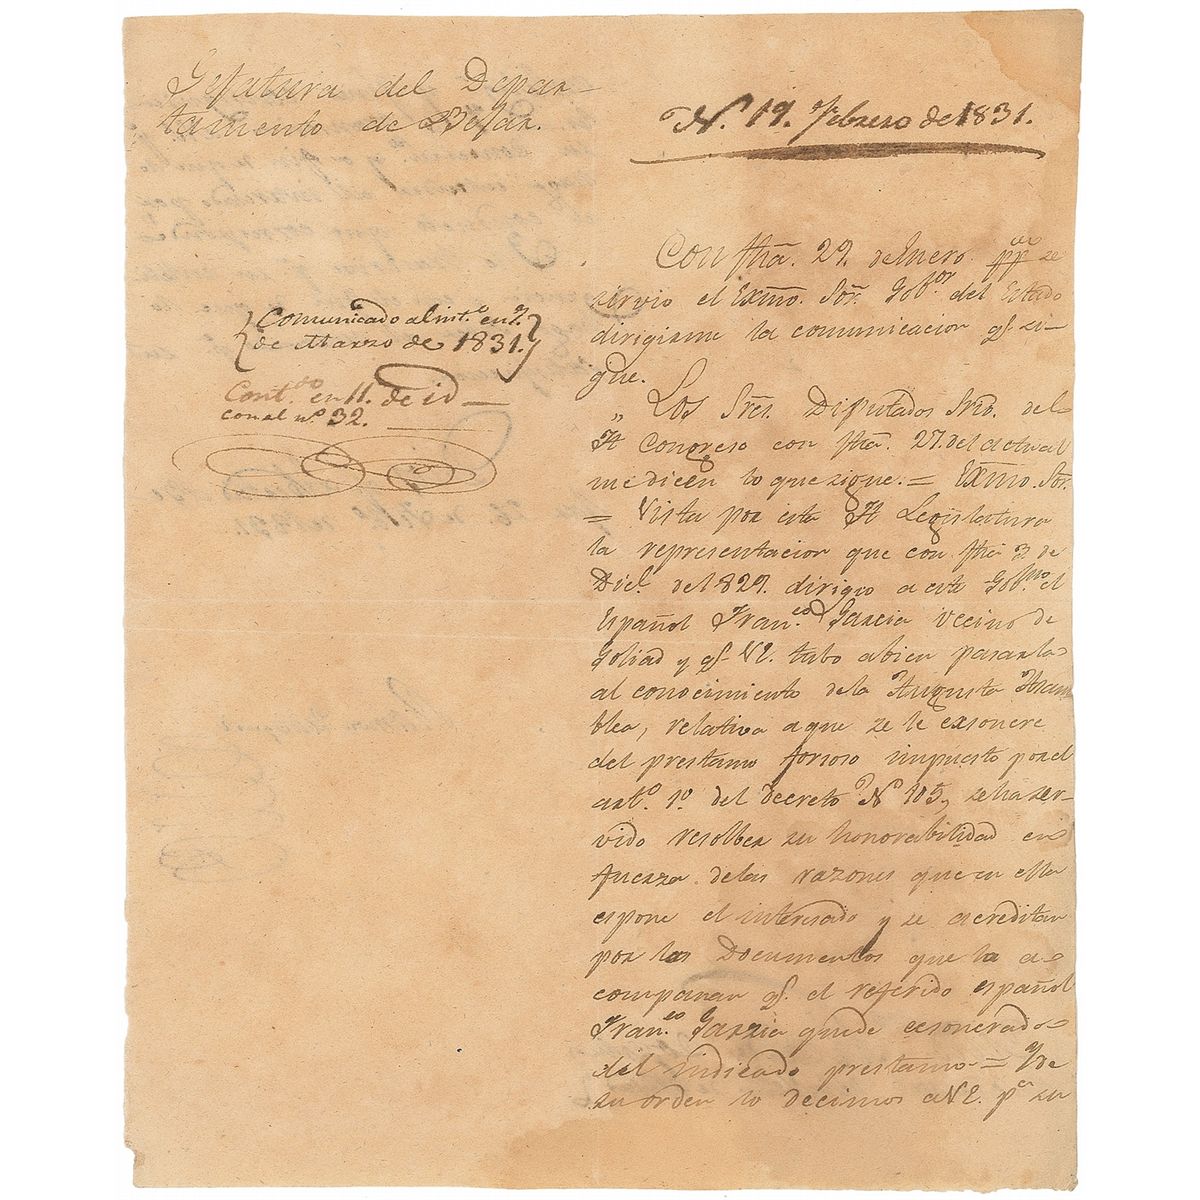 Gefatura del Depar-
tamento de Bejar.
N.º 19. Febrero de 1831.
Comunicado al int.º en 7.
de Marzo de 1831.
Cont.do en 11. de id
con el n.º 32.
Con fha. 29. de Enero pp.do se
servio el Exmo. Sor. Gob.or del Estado
dirigirme la comunicacion q.e si-
gue.
„ Los Sres. Diputados Srio. del
H Congreso con fha. 27. del actual
me dicen lo que sigue. = Exmo. Sor.
= Vista por esta H Legislatura
la representacion que con fha 3 de
Die. del 829. dirigio a este Gob.no el
Español Fran.co Garcia vecino de
Goliad y q.e V E. tubo abien pasarla
al conocimiento dela Augusta Asam
blea, relativa aque se le exsonere
del prestamo forsoso impuesto por el
art.º 1º del decreto Nº 105, seha ser-
vido resolber su honorabilidad en
fuerza delas razones que en ella
espone el interesado y se acreditan
por los Documentos que la a-
compañan q.e el referido español
Fran.co Garzia quede exsonerado
del indicado prestamo = Y de
su orden lo decimos a V E. p.a su